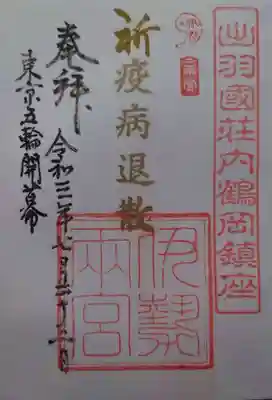 出羽國荘内鶴岡鎮座
祈疫病退散
伊勢
兩宮
奉拜
令和三年七月二十三日
東京五輪開幕